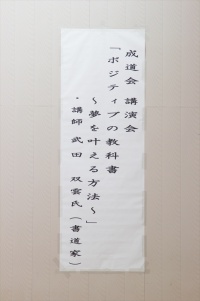 成道会 講演会
「ポジティブの教科書
～夢を叶える方法～」
・講師 武田 双雲氏（書道家）